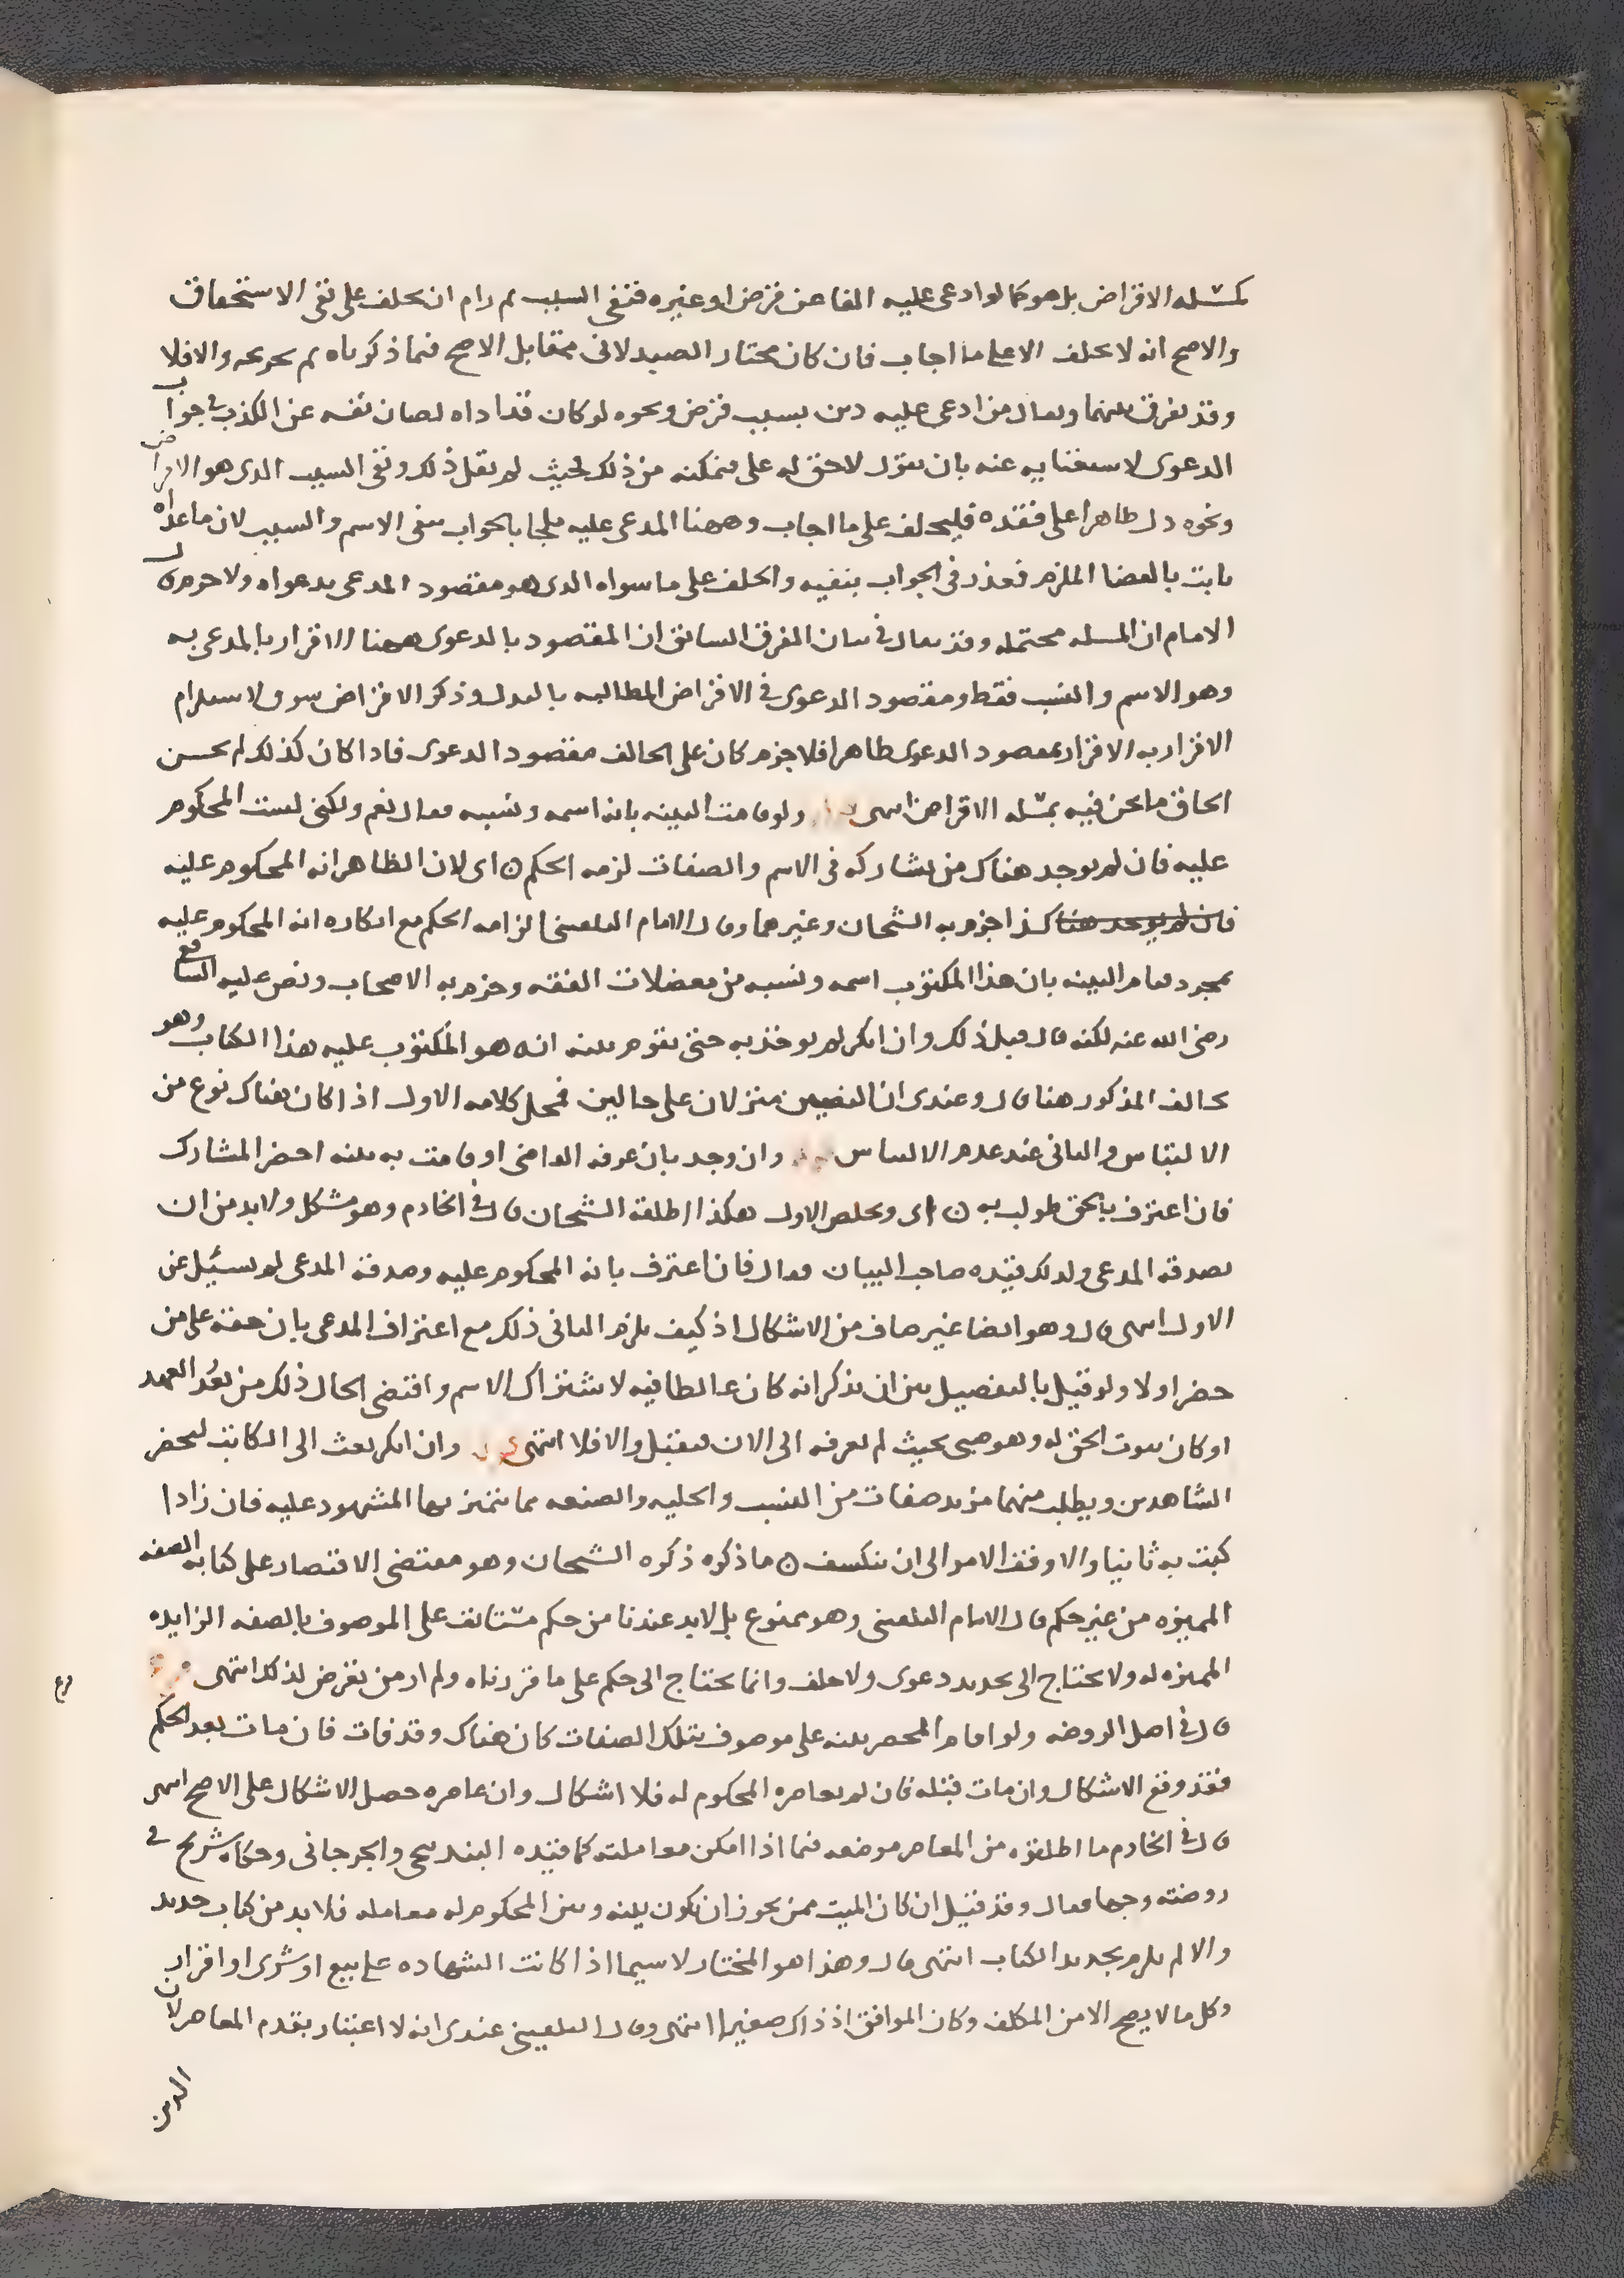 كمسئله الاقراض بل هو كما لو ادعى عليه الفا عن قرض او غيره فنفى السبب ثم رام ان يحلف على نفى الاستحقاق
والاصح انه لا يحلف الا على ما اجاب فان كان مختار الصيدلانى مقابل الاصح فيما ذكرناه تم تخريجه والا فلا
وقد يفرق بينهما ويقال من ادعى عليه دين بسبب قرض ونحوه لو كان قد اداه لصان نفسه عن الكذب فى جواب
الدعوى لاستغنائه عنه بان يقول لا حق له على فتمكنه من ذلك بحيث لم يقل ذلك ونفى السبب الذى هو الاقراض
ونحوه دل ظاهرا على فقده فليحلف على ما اجاب وههنا المدعى عليه ملجا بالجواب بنفى الاسم والسبب لان ما عداه
ثابت بالقضا الملزم فعذر فى الجواب بنفيه والحلف على ما سواه الذى هو مقصود المدعى بدعواه ولا جرم قال
الامام ان المسله محتمله وقد يقال فى بيان الفرق السابق ان المقصود بالدعوى ههنا الاقرار بالمدعى به
وهو الاسم والنسب فقط ومقصود الدعوى فى الاقراض المطالبه بالبدل وذكر الاقراض سوى لاستلزام
الاقرار به الاقرار بمقصود الدعوى ظاهرا فلا جرم كان على الحالف مقصود الدعوى فاذا كان كذلك لم يحسن
الحاق ما نحن فيه بمسله الاقراض انتهى ولو قامت البينه بانه اسمه ونسبه فقال نعم ولكنى لست المحكوم
عليه فان لم يوجد هناك من يشاركه فى الاسم والصفات لزمه الحكم ن اى لان الظاهر انه المحكوم عليه
فان لم يوجد هنا كذا جزم به الشيخان وغيرهما وقال الامام البلقينى الزامه الحكم مع انكاره انه المحكوم عليه
بمجرد قيام البينه بان هذا المكتوب اسمه ونسبه من معضلات الفقه وجزم به الاصحاب ونص عليه الشافعى
رضى الله عنه لكنه قال قبل ذلك وان انكر لم يوخذ به حتى يقوم بينه انه هو المكتوب عليه هذا الكتاب وهو
يخالف المذكور هنا قال وعندى ان النصين منزلان على حالين فمحل كلامه الاول اذا كان هناك نوع من
الالتباس والثانى عند عدم الالتباس وان وجد بان عرفه القاضى او قامت به بينه احضر المشارك
فان اعترف بالحق طولب به ن اى ويخلص الاول هكذا اطلقه الشيخان قال فى الخادم وهو مشكل ولا بد من ان
يصدقه المدعى ولذلك قيده صاحب البيان فقال فان اعترف بانه المحكوم عليه وصدقه المدعى لم يسئل عن
الاول انتهى قال وهو ايضا غير صاف من الاشكال اذ كيف يلزم الثانى ذلك مع اعتراف المدعى بان حقه على من
حضر اولا ولو قيل بالتفصيل بين ان يذكر انه كان غالطا فيه لاشتراك الاسم واقتضى الحال ذلك من بُعْد العهد
او كان ثبوت الحق له وهو صبى بحيث لم يعرفه الى الان فيقبل والا فلا انتهى وان انكر بعث الى الكاتب ليحضر
الشاهدين ويطلب منهما مزيد صفات من النسب والحليه والصنعه مما يتميز بها المشهود عليه فان زادا
كتب به ثانيا والا وقف الامر الى ان ينكشف ن ما ذكره ذكره الشيخان وهو مقتضى الاقتصار على كتابه الصفه
المميزه من غير حكم قال الامام البلقينى وهو ممنوع بل لا بد عندنا من حكم مستانف على الموصوف بالصفه الزايده
المميزه له ولا يحتاج الى تجديد دعوى ولا حلف وانما يحتاج الى حكم على ما قررناه ولم ار من تعرض لذلك انتهى
فرع
قال فى اصل الروضه ولو اقام المحضر بينه على موصوف بتلك الصفات كان هناك وقد فات فان مات بعد الحكم
فقد وقع الاشكال وان مات قبله فان لم يعاصره المحكوم له فلا اشكال وان عاصره حصل الاشكال على الاصح انتهى
قال فى الخادم ما اطلقوه من المعاصر موضعه فيما اذا امكن معاملته كما قيده البندنيجى والجرجانى وحكاه شريح فى
روضته وجها فقال وقد قيل ان كان الميت ممن يجوز ان يكون بينه وبين المحكوم له معامله فلا بد من كتاب جديد
والا لم يلزم تجديد الكتاب انتهى قال وهذا هو المختار لا سيما اذا كانت الشهاده على بيع او شرى او اقرار
وكل ما لا يصح الا من المكلف وكان الموافق اذ ذاك صغيرا انتهى وقال البلقينى عندى انه لا اعتبار بتقدم المعاصر لان
الدين